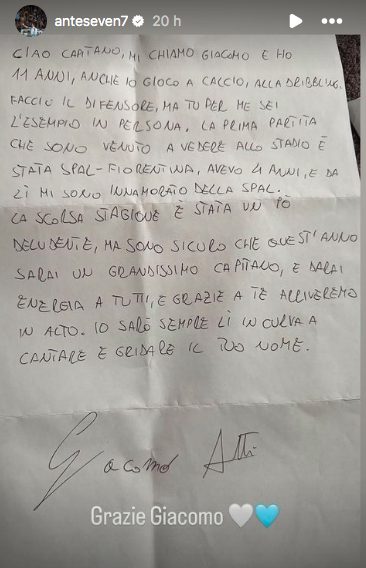 anteseven7 20 h
CIAO CAPITANO, MI CHIAMO GIACOMO E HO
11 ANNI, ANCHE IO GIOCO A CALCIO, ALLA DRIBBLING.
FACCIO IL DIFENSORE, MA TU PER ME SEI
L'ESEMPIO IN PERSONA. LA PRIMA PARTITA
CHE SONO VENUTO A VEDERE ALLO STADIO È
STATA SPAL-FIORENTINA, AVEVO 4 ANNI, E DA
LÌ MI SONO INNAMORATO DELLA SPAL.
LA SCORSA STAGIONE È STATA UN PÒ
DELUDENTE, MA SONO SICURO CHE QUEST'ANNO
SARAI UN GRANDISSIMO CAPITANO, E DARAI
ENERGIA A TUTTI, E GRAZIE A TE ARRIVEREMO
IN ALTO. IO SARÒ SEMPRE LÌ IN CURVA A
CANTARE E GRIDARE IL TUO NOME.
Giacomo
Grazie Giacomo 🤍🩵